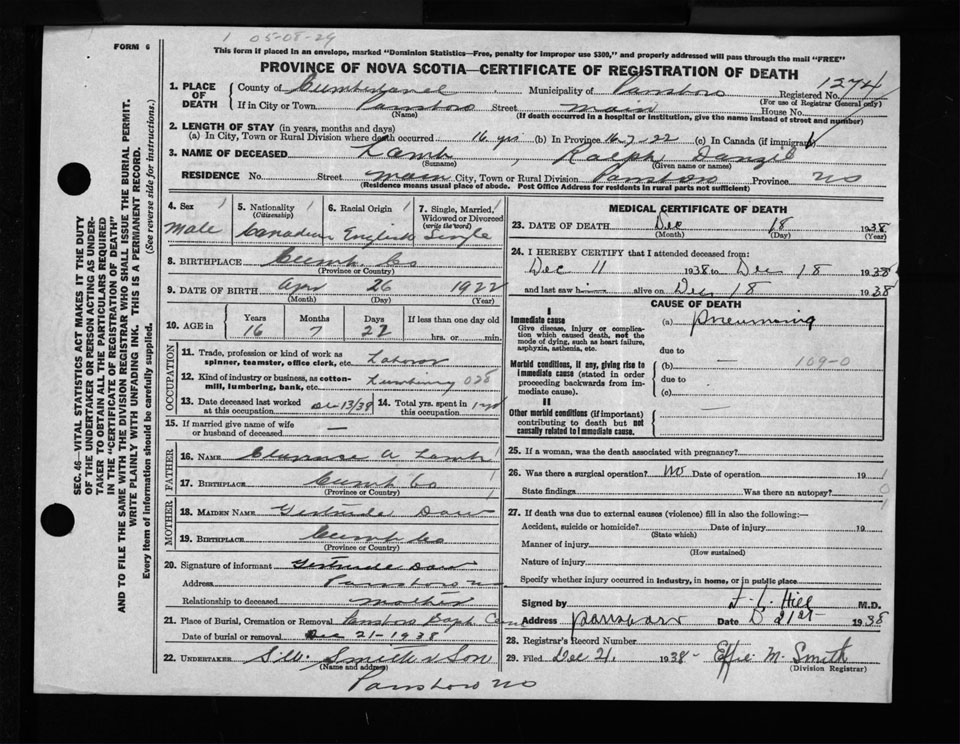 FORM 6
1 05-08-29
This form if placed in an envelope, marked "Dominion Statistics—Free, penalty for improper use $300," and properly addressed will pass through the mail "FREE"
PROVINCE OF NOVA SCOTIA—CERTIFICATE OF REGISTRATION OF DEATH
1. PLACE OF DEATH
County of Cumberland Municipality of Parrsboro Registered No. 1274
(For use of Registrar General only)
If in City or Town Parrsboro Street Main House No.
(Name) (If death occurred in a hospital or institution, give the name instead of street and number)
2. LENGTH OF STAY (in years, months and days)
(a) In City, Town or Rural Division where death occurred 16 yrs (b) In Province 16-7-22 (c) In Canada (if immigrant)
3. NAME OF DECEASED Lamb, Ralph
(Surname) (Given name or names)
RESIDENCE No. Street Main City, Town or Rural Division Parrsboro Province NS
(Residence means usual place of abode. Post Office Address for residents in rural parts not sufficient)
4. Sex Male
5. Nationality (Citizenship) Canadian
6. Racial Origin English
7. Single, Married, Widowed or Divorced (write the word) Single
8. BIRTHPLACE Cumb Co
(Province or Country)
9. DATE OF BIRTH Apr 26 1922
(Month) (Day) (Year)
10. AGE in Years Months Days If less than one day old
16 7 22 hrs. or min.
OCCUPATION
11. Trade, profession or kind of work as spinner, teamster, office clerk, etc. Laborer
12. Kind of industry or business, as cotton-mill, lumbering, bank, etc. Lumbering 028
13. Date deceased last worked at this occupation Dec 13/38
14. Total yrs. spent in this occupation 1 yr
15. If married give name of wife or husband of deceased —
FATHER
16. NAME Clarence A Lamb
17. BIRTHPLACE Cumb Co
(Province or Country)
MOTHER
18. MAIDEN NAME Gertrude Daw
19. BIRTHPLACE Cumb Co
(Province or Country)
20. Signature of informant Gertrude Daw
Address Parrsboro NS
Relationship to deceased Mother
21. Place of Burial, Cremation or Removal Parrsboro Bapt Cem
Date of burial or removal Dec 21-1938
22. UNDERTAKER Smith & Son
(Name and address)
Parrsboro NS
MEDICAL CERTIFICATE OF DEATH
23. DATE OF DEATH Dec 18 1938
(Month) (Day) (Year)
24. I HEREBY CERTIFY that I attended deceased from:
Dec 11 1938 to Dec 18 1938
and last saw him alive on Dec 18 1938
CAUSE OF DEATH
I
Immediate cause
Give disease, injury or complication which caused death, not the mode of dying, such as heart failure, asphyxia, asthenia, etc.
(a) Pneumonia
due to
Morbid conditions, if any, giving rise to immediate cause (stated in order proceeding backwards from immediate cause).
(b) — 109-0
due to
(c)
II
Other morbid conditions (if important) contributing to death but not causally related to immediate cause. —
25. If a woman, was the death associated with pregnancy?
26. Was there a surgical operation? No Date of operation 19
State findings Was there an autopsy?
27. If death was due to external causes (violence) fill in also the following:—
Accident, suicide or homicide? Date of injury 19
(State which)
Manner of injury
(How sustained)
Nature of injury
Specify whether injury occurred in industry, in home, or in public place
Signed by Hill M.D.
Address Parrsboro Date D 21st 1938
28. Registrar's Record Number
29. Filed Dec 21, 1938- Effie M. Smith
(Division Registrar)
SEC. 46—VITAL STATISTICS ACT MAKES IT THE DUTY
OF THE UNDERTAKER OR PERSON ACTING AS UNDER-
TAKER TO OBTAIN ALL THE PARTICULARS REQUIRED
IN THE "CERTIFICATE OF REGISTRATION OF DEATH"
AND TO FILE THE SAME WITH THE DIVISION REGISTRAR WHO SHALL ISSUE THE BURIAL PERMIT.
WRITE PLAINLY WITH UNFADING INK. THIS IS A PERMANENT RECORD.
Every item of information should be carefully supplied. (See reverse side for instructions.)